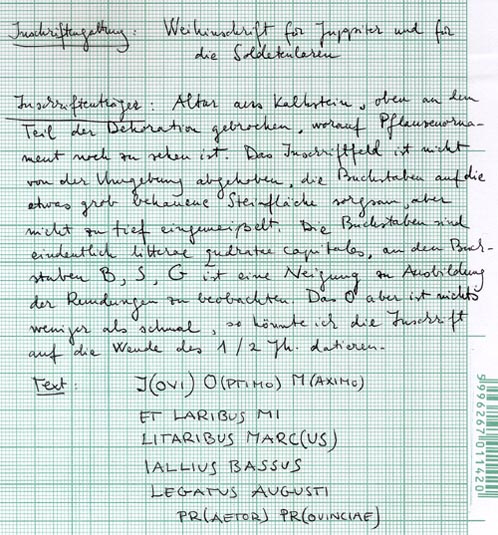 Inschriftengattung: Weihinschrift für Juppiter und für
die Soldatenlaren
Inschriftenträger: Altar aus Kalkstein, oben an dem
Teil der Dekoration gebrochen, worauf Pflanzenorna-
ment noch zu sehen ist. Das Inschriftfeld ist nicht
von der Umgebung abgehoben, die Buchstaben auf die
etwas grob behauene Steinfläche sorgsam, aber
nicht zu tief eingemeißelt. Die Buchstaben sind
eindeutlich litterae quadratae capitales, an den Buch-
staben B, S, G ist eine Neigung zu Ausbildung
der Rundungen zu beobachten. Das O aber ist nichts
weniger als schmal, so könnte ich die Inschrift
auf die Wende des 1/2 Jh. datieren.
Text: I(OVI) O(PTIMO) M(AXIMO)
ET LARIBUS MI
LITARIBUS MARC(US)
IALLIUS BASSUS
LEGATUS AUGUSTI
PR(AETOR) PR(OVINCIAE)
5996267011420